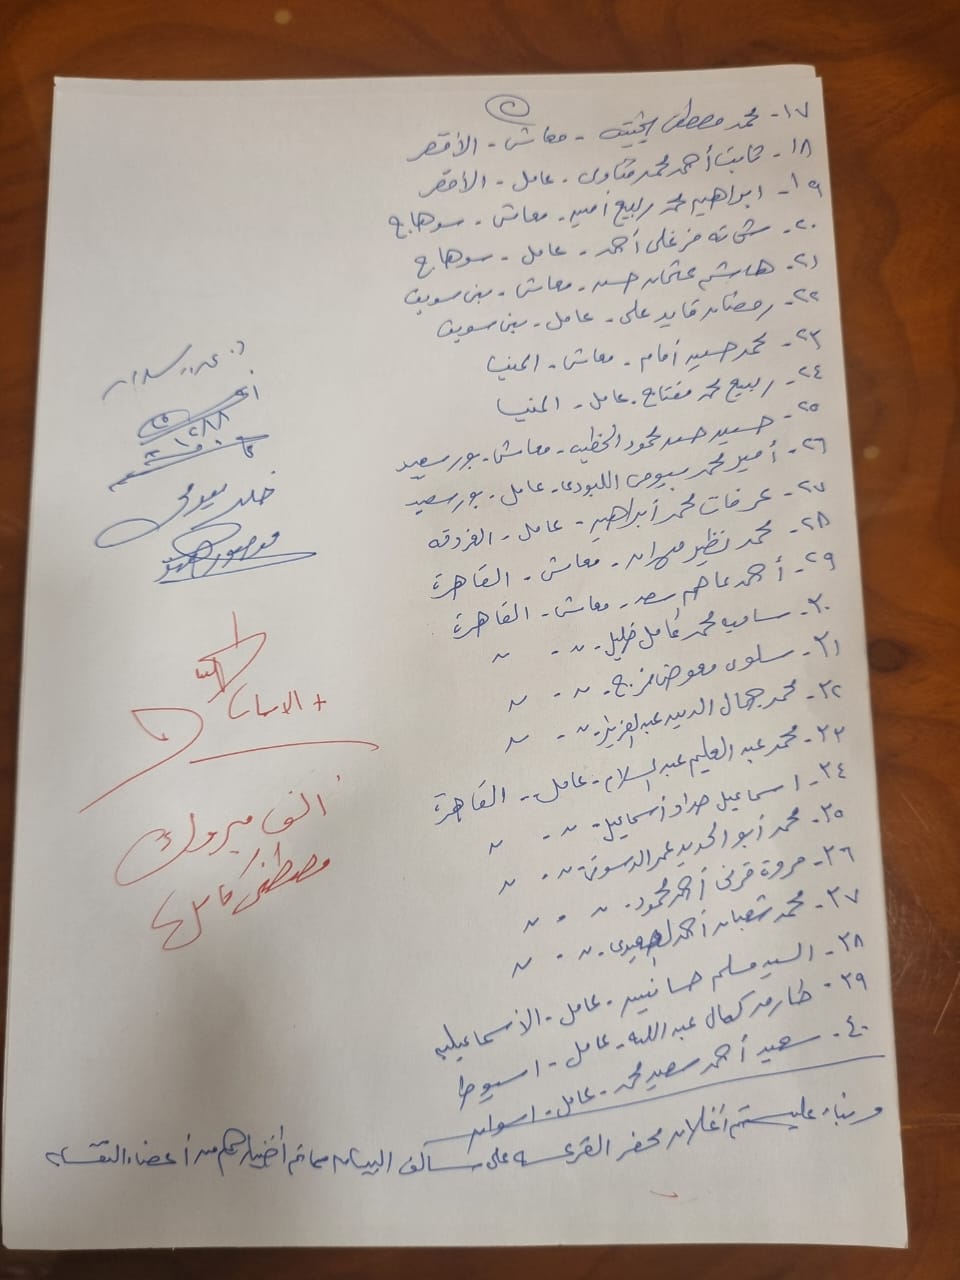 ١٧- محمد مصطفى - معاش - الأقصر
١٨- ثابت أحمد محمد قناوى - عامل - الأقصر
١٩- ابراهيم محمد ربيع أمين - معاش - سوهاج
٢٠- شحاته فرغلى أحمد - عامل - سوهاج
٢١- هاشم عثمان حسن - معاش - بنى سويف
٢٢- رمضان قايد على - عامل - بنى سويف
٢٣- محمد حسين امام - معاش - المنيا
٢٤- ربيع محمد مفتاح - عامل - المنيا
٢٥- حسين حسن محمود الخطيب - معاش - بور سعيد
٢٦- أمير محمد بيومى اللبودى - عامل - بور سعيد
٢٧- عرفات محمد أبراهيم - عامل - الغردقه
٢٨- محمد نظير مهران - معاش - القاهرة
٢٩- أحمد عاصم سعد - معاش - القاهرة
٣٠- ساميه محمد كامل خليل - " - "
٣١- سلوى معوض فرج - " - "
٣٢- محمد جمال الدين عبد العزيز - " - "
٣٣- محمد عبد العليم عبد السلام - عامل - القاهرة
٣٤- اسماعيل أسماعيل - " - "
٣٥- محمد أبو الحديد عمر - " - "
٣٦- مروة قرنى أحمد محمود - " - "
٣٧- محمد شعبان أحمد - " - "
٣٨- السيد مسلم حسانين - عامل - الأسماعيليه
٣٩- طارق كمال عبد اللاه - عامل - اسيوط
٤٠- سعيد أحمد سعيد محمد - عامل - اسوان
وبناء عليه تم أغلان محضر القرعه على سالف البيان مما تم أختيارهم من أعضاء النقابه
خالد
منصور
+ الاسماء
الف مبروك
مصطفى كامل